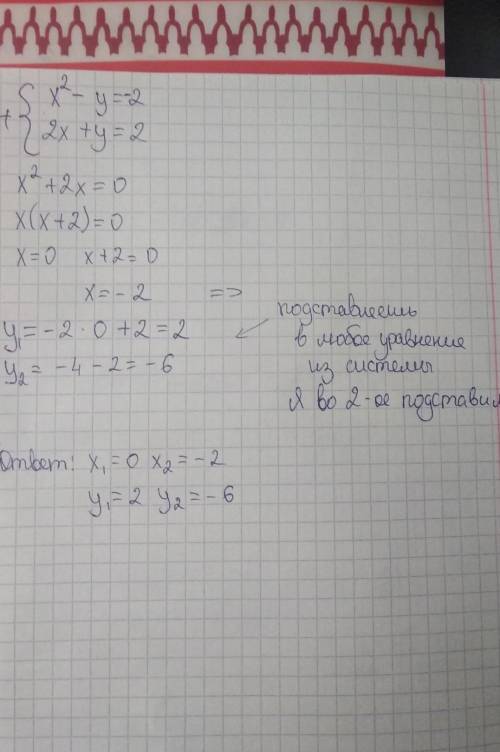 + { x² - y = -2
2x + y = 2
x² + 2x = 0
x(x+2) = 0
x = 0 x + 2 = 0
x = -2 =>
y₁ = -2 · 0 + 2 = 2
y₂ = -4 - 2 = -6
подставляешь
в любое уравнение
из системы
Я во 2-ое подставил
Ответ: x₁ = 0 x₂ = -2
y₁ = 2 y₂ = -6